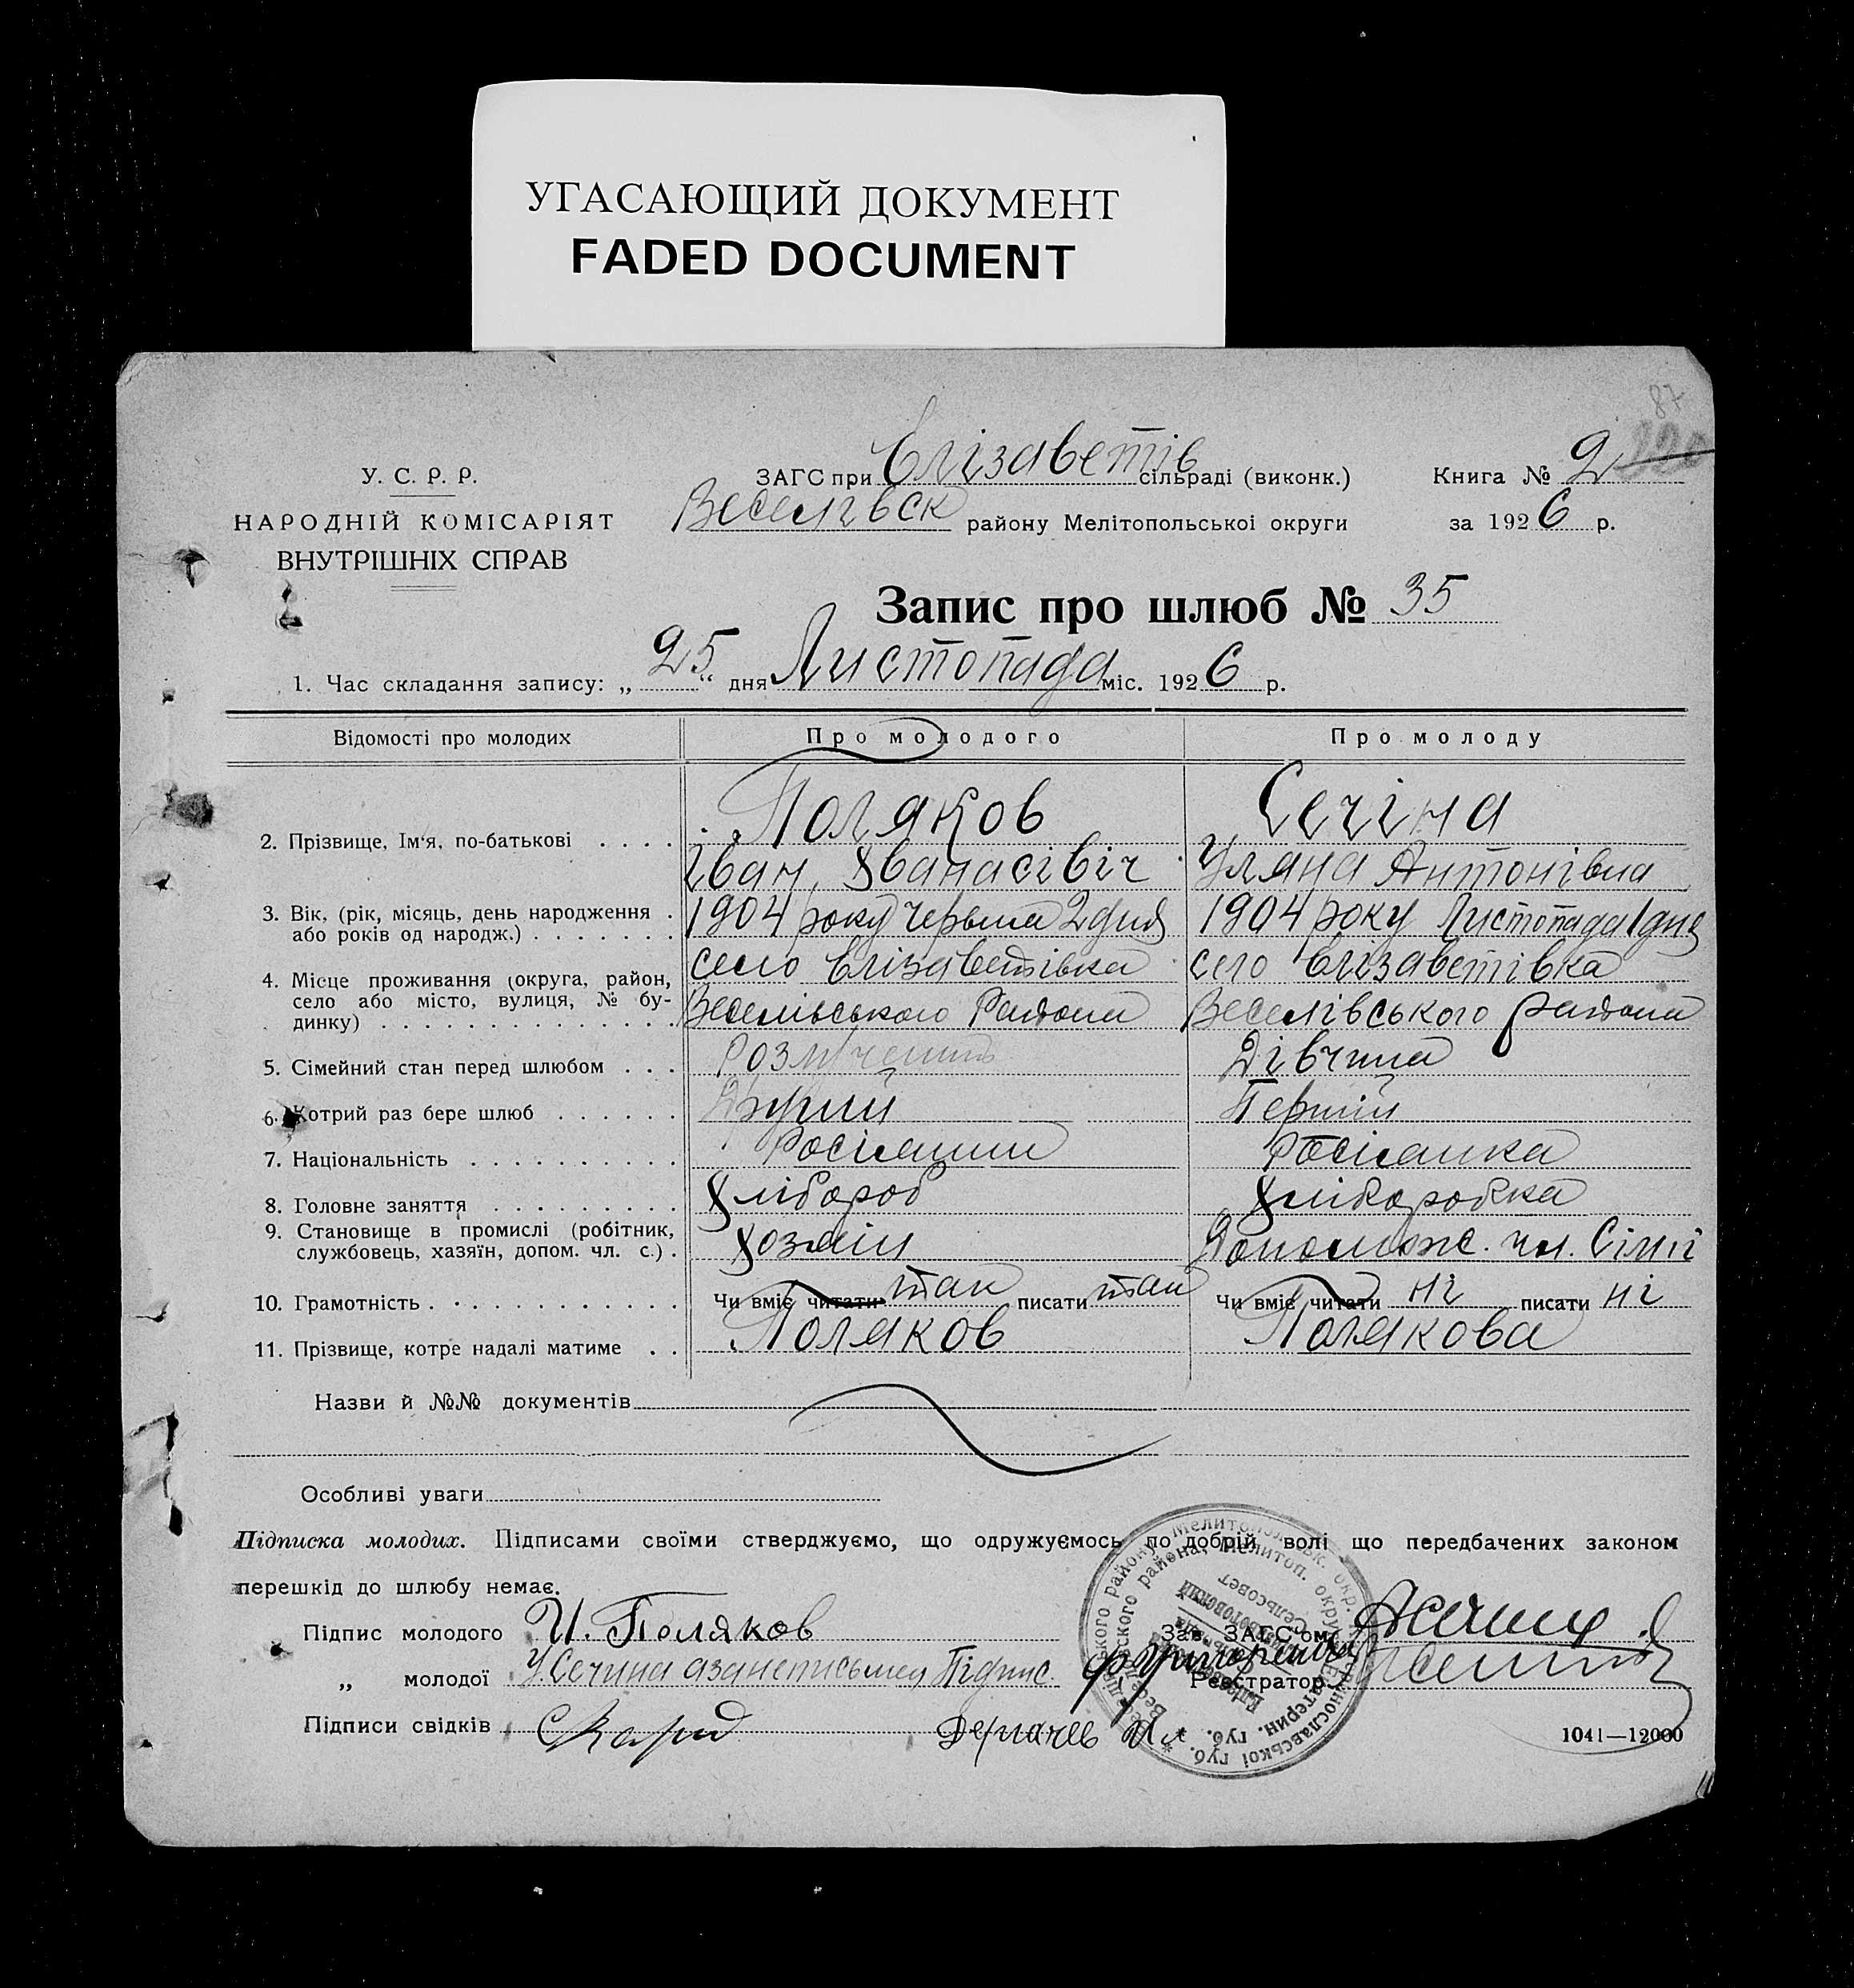 УГАСАЮЩИЙ ДОКУМЕНТ
FADED DOCUMENT
87
У. С. Р. Р.
НАРОДНІЙ КОМІСАРІЯТ
ВНУТРІШНІХ СПРАВ
ЗАГС при Єлізаветів сільраді (виконк.)
Веселівск району Мелітопольської округи
Книга № 2
за 1926 р.
Запис про шлюб № 35
1. Час складання запису: „25“ дня Листопада міс. 1926 р.
Відомості про молодих Про молодого Про молоду
2. Прізвище, Ім'я, по-батькові . . . . Поляков Сечіна
Іван, Хванасівіч Уляна Антонівна
3. Вік, (рік, місяць, день народження . 1904 року Червня 2 дня 1904 року Листопада 1 дня
або років од народж.) . . . . . . .
4. Місце проживання (округа, район, село Єлізаветівка село Єлізаветівка
село або місто, вулиця, № бу- Веселівського Района Веселівського района
динку) . . . . . . . . . . . . . .
5. Сімейний стан перед шлюбом . . . Дівчина
6. Котрий раз бере шлюб . . . . . . Другий Перший
7. Національність . . . . . . . . . . Росіянин Росіянка
8. Головне заняття . . . . . . . . . Хлібороб Хліборобка
9. Становище в промислі (робітник, Хозяін Допомож. чл. Сімії
службовець, хазяїн, допом. чл. с.) .
10. Грамотність . . . . . . . . . . . . Чи вміє читати так писати так Чи вміє читати ні писати ні
11. Прізвище, котре надалі матиме . . Поляков Полякова
Назви й №№ документів
Особливі уваги
Підписка молодих. Підписами своїми стверджуємо, що одружуємось по добрій волі що передбачених законом
перешкід до шлюбу немає.
Підпис молодого И. Поляков
Зав. ЗАГС'ом
„ молодої У. Сечина
Реєстратор
Підписи свідків
1041—12000